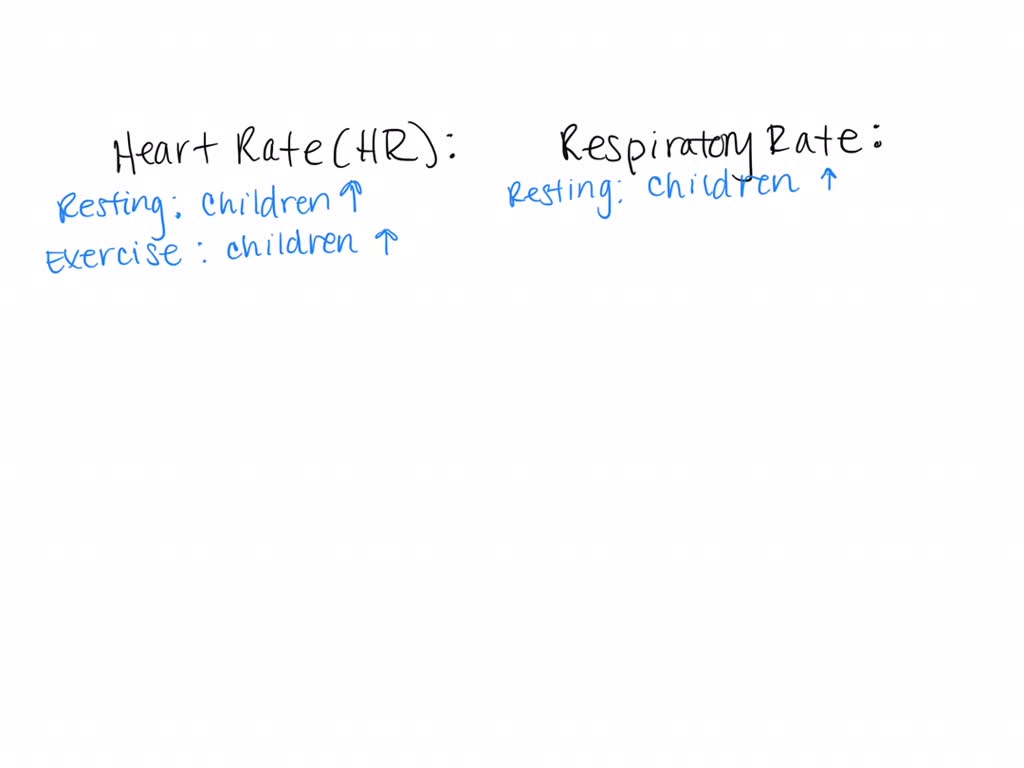 Heart Rate (HR):
Resting: children ↑
Exercise: children ↑
Respiratory Rate:
Resting: children ↑